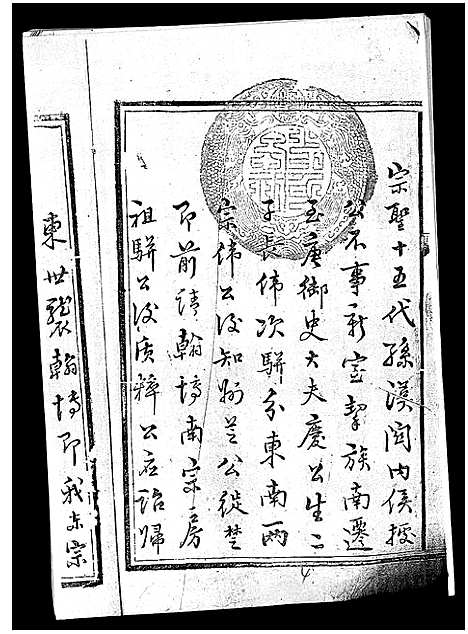 宗聖十五代孫漢關内侯據
公不事新室挈族南遷
至唐御史大夫慶公生二
子長偉次駢分東南兩
宗偉公後知州芝公徙楚
即前請翰博南宗房
祖駢公後质粹公应詔歸
東世襲翰博即我东宗